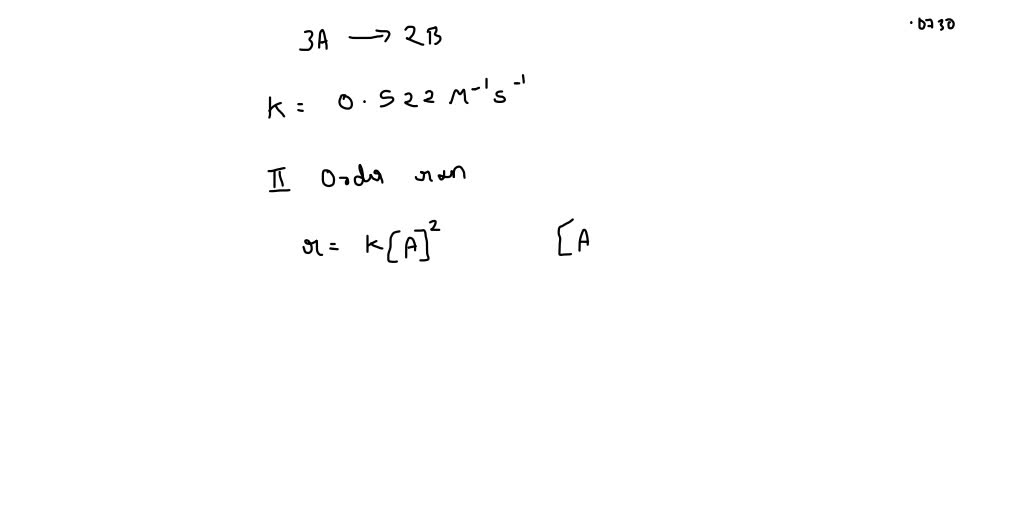 ·0730
3A → 2B
K = 0.522 M⁻¹s⁻¹
II Order rxn
r = K[A]² [A